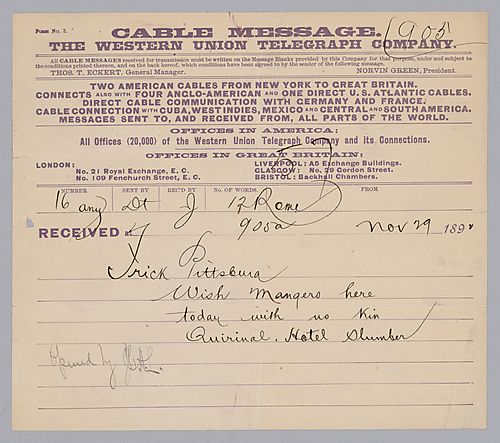 FORM NO. 3.
905
CABLE MESSAGE.
THE WESTERN UNION TELEGRAPH COMPANY.
All CABLE MESSAGES received for transmission must be written on the Message Blanks provided by this Company for that purpose, under and subject to
the conditions printed thereon, and on the back hereof, which conditions have been agreed to by the sender of the following message.
THOS. T. ECKERT, General Manager. NORVIN GREEN, President.
TWO AMERICAN CABLES FROM NEW YORK TO GREAT BRITAIN.
CONNECTS ALSO WITH FOUR ANGLO-AMERICAN AND ONE DIRECT U.S. ATLANTIC CABLES.
DIRECT CABLE COMMUNICATION WITH GERMANY AND FRANCE.
CABLE CONNECTION WITH CUBA, WEST INDIES, MEXICO AND CENTRAL AND SOUTH AMERICA.
MESSAGES SENT TO, AND RECEIVED FROM, ALL PARTS OF THE WORLD.
OFFICES IN AMERICA:
All Offices (20,000) of the Western Union Telegraph Company and its Connections.
OFFICES IN GREAT BRITAIN:
LONDON: LIVERPOOL: A5 Exchange Buildings.
No. 21 Royal Exchange, E. C. GLASGOW: No. 29 Gordon Street.
No. 109 Fenchurch Street, E. C. BRISTOL: Backhall Chambers.
NUMBER SENT BY REC'D BY No. OF WORDS. FROM
16 any Dt J 12 Rome
905a
RECEIVED at Nov 29 189
Frick Pittsburg
Wish Mangers here
today with us Kin
Quirinal. Hotel Slumber
Opened by